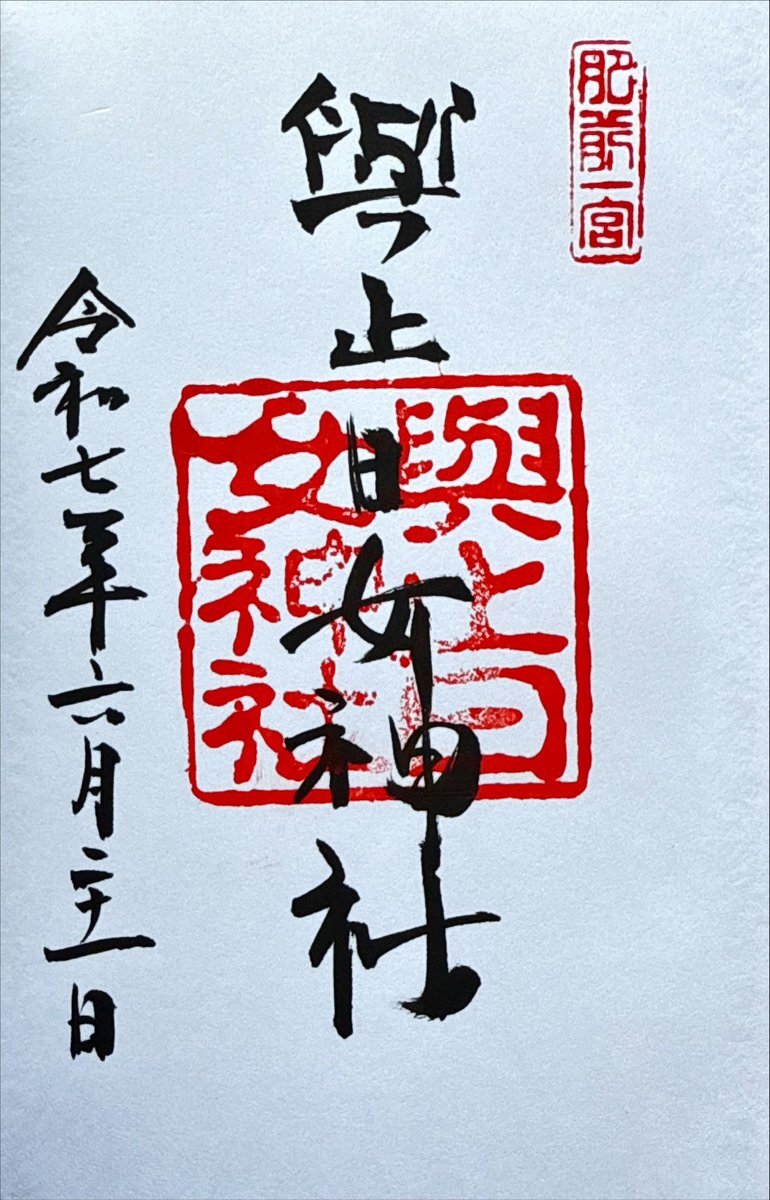 肥前一宮
與止日女神社
與止日
女神社
令和七年六月二十一日